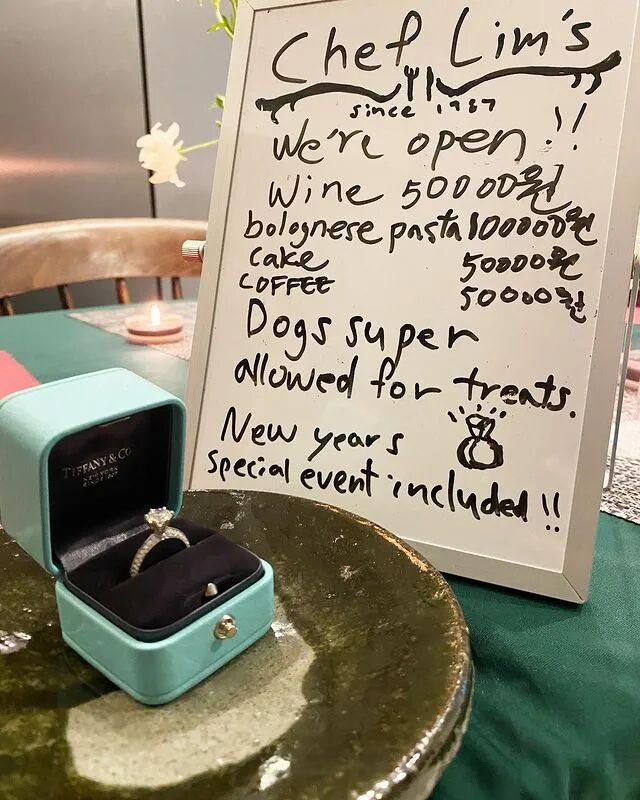 Chef Lim's
since 1987
We're open!!
Wine 50000원
bolognese pasta 100000원
cake 50000원
COFFEE 50000원
Dogs super
allowed for treats.
New years
special event included!!
TIFFANY & CO
NEW YORK